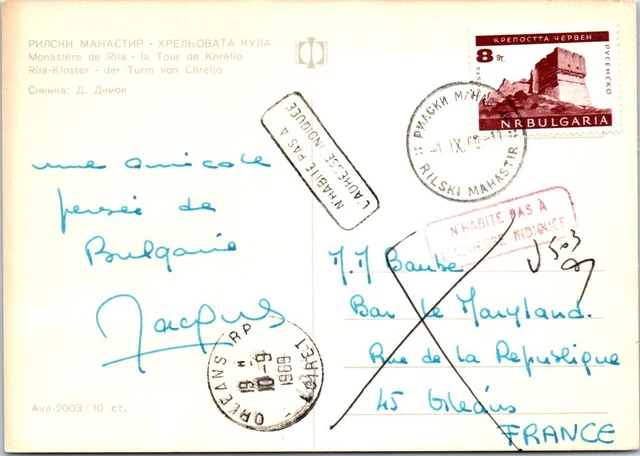 РИЛСКИ МАНАСТИР - ХРЕЛЬОВАТА КУЛА
Monastère de Rila - la Tour de Khrélio
Rila-Kloster - der Turm von Chreljo
Снимка: Д. Димов
КРЕПОСТТА ЧЕРВЕН
8 ст.
РУСЕНСКО
NRBULGARIA
РИЛСКИ МАНАС
IX
RILSKI MANASTIR
N'HABITE PAS A
L'ADRESSE INDIQUEE
N'HABITE PAS A
L'ADRESSE INDIQUEE
une amicale
pensée de
Bulgarie
Jacques
Bar le Maryland.
Rue de la République
45 Orléans
FRANCE
ORLEANS RP
19 H
10-9
1969
LOIRET
Акл-2003 / 10 ст.